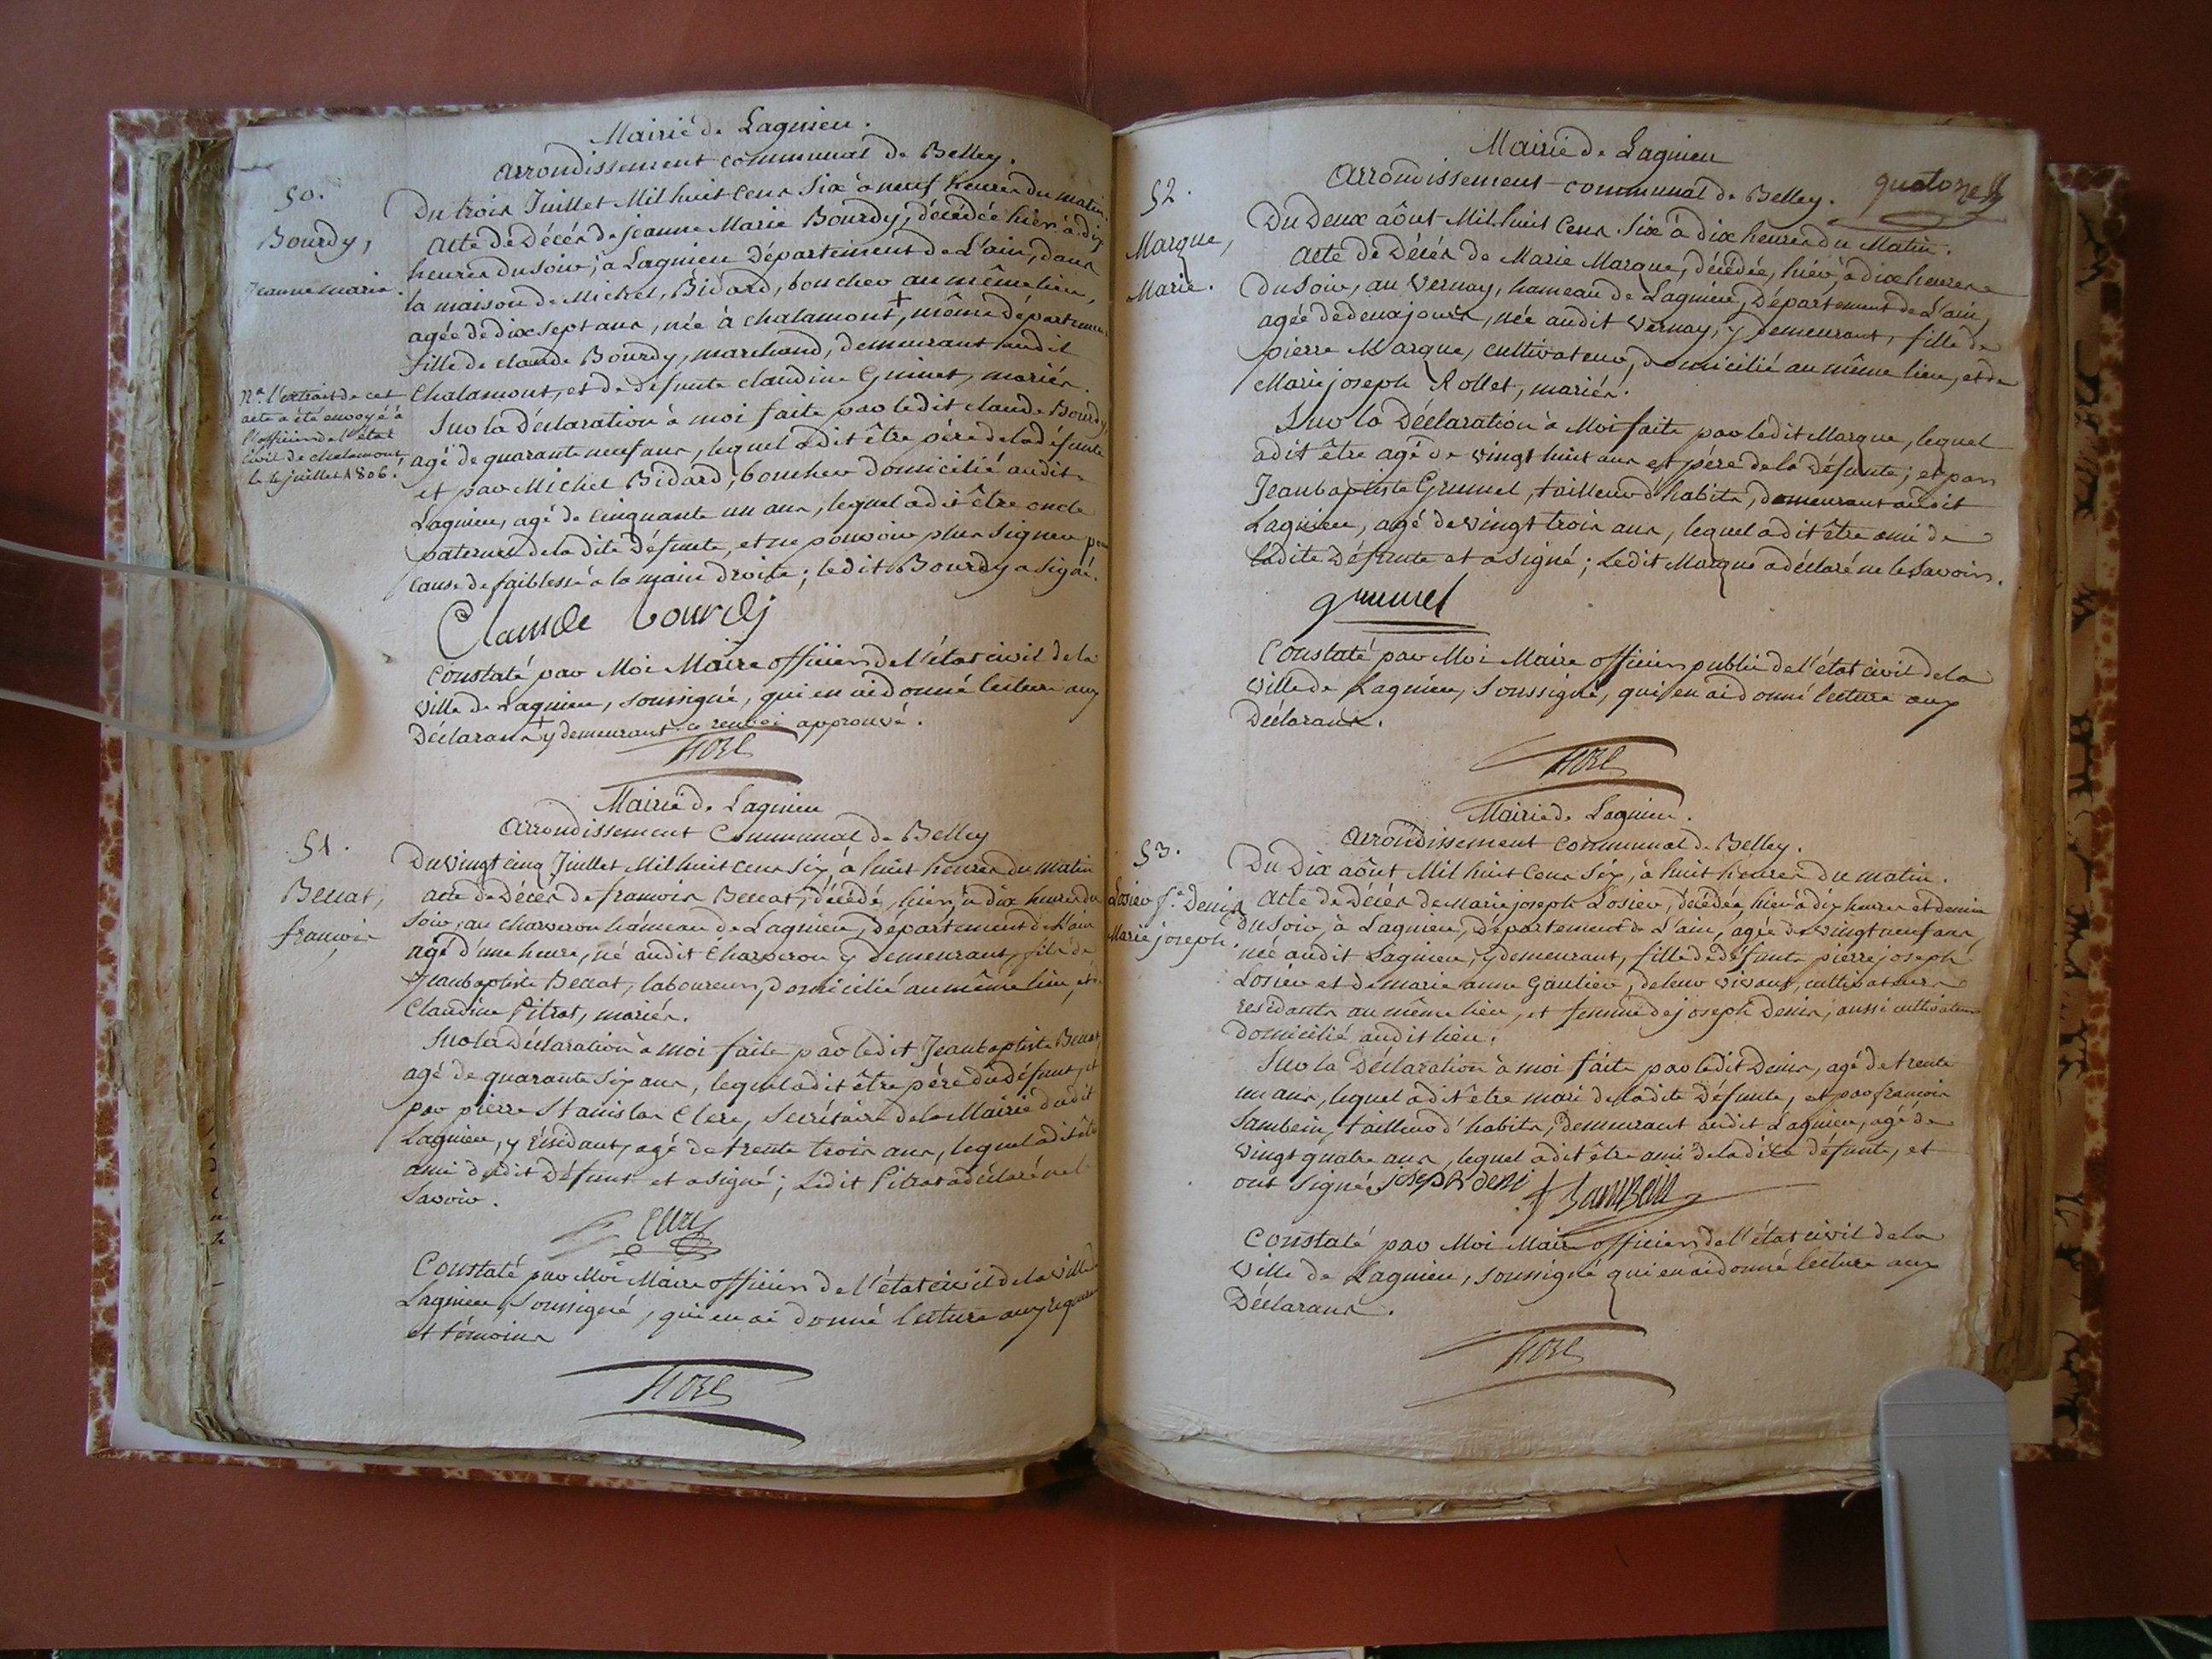 Mairie de Lagnieu.
arrondissement communal de Belley.
50.
Bourdy,
Jeanne marie.
Du trois Juillet Mil huit Cens Six à neuf heures du matin.
Acte de Décès de Jeanne Marie Bourdy, décédée hier à dix
heures du Soir, à Lagnieu Département de L'ain, dans
la maison de Michel, Bidard, boucher au même lieu,
agée de dix sept ans, née à chalamont +, même département
fille de claude Bourdy, marchand, demeurant audit
Chalamont, et de défunte claudine Guinet, mariés.
Na. l'extrait de cet
acte a été envoyé à
l'officier de l'état
civil de chalamont,
le 4 juillet 1806.
Sur la déclaration à moi faite par ledit claude Bourdy,
agé de quarante neuf ans, lequel a dit être père de la défunte
et par Michel Bidard, boucher domicilié audit
Lagnieu, agé de Cinquante un ans, lequel a dit être oncle
paternel de la dite Défunte, et ne pouvoir plus signer pour
cause de faiblesse à la main droite; ledit Bourdy a signé.
Claude bourdj
Constaté par Moi Maire officier de l'état civil de la
ville de Lagnieu, soussigné, qui en ai donné lecture aux
Déclarans + y demeurant ce renvoi approuvé.
Mairie de Lagnieu
arrondissement Communal de Belley
51.
Beccat,
françois
Du vingt cinq Juillet Mil huit cens six, à huit heures du matin
acte de Décès de françois Beccat, décédé, hier, à dix heures du
soir, au charveron hameau de Lagnieu, département de L'ain
agé d'une heure, né audit Charveron y demeurant, fils de
Jeanbaptiste Beccat, laboureur, domicilié au même lieu, et de
Claudine Pitrat, mariés.
Sur la déclaration à moi faite par ledit Jeanbaptiste Beccat,
agé de quarante six ans, lequel a dit être père du défunt, et
par pierre Stanislas Clerc, Secrétaire de la Mairie dudit
Lagnieu, y résidant, agé de trente trois ans, lequel a dit être
ami dudit Défunt et a signé; Ledit Pitrat a déclaré ne le
Savoir.
Clerc
Constaté par Moi Maire officier de l'état civil de la ville de
Lagnieu, Soussigné, qui en ai donné lecture aux
et témoins
Mairie de Lagnieu
arrondissement communal de Belley.
quatorze
52.
Marque,
Marie.
Du Deux août Mil huit Cens Six à dix heures du Matin.
Acte de Décès de Marie Marque, décédée, hier à dix heures
du Soir, au Vernay, hameau de Lagnieu, Département de L'ain,
agée de deux jours, née audit Vernay, y demeurant, fille de
pierre Marque, cultivateur, domicilié au même lieu, et de
Marie joseph Rollet, mariés.
Sur la Déclaration à Moi faite par ledit Marque, lequel
a dit être agé de vingt huit ans et père de la Défunte; et par
Jeanbaptiste Grumel, tailleur d'habits, demeurant audit
Lagnieu, agé de vingt trois ans, lequel a dit être ami de
ladite Défunte et a signé; Ledit Marque a déclaré ne le Savoir.
grumel
Constaté par Moi Maire officier public de l'état civil de la
ville de Lagnieu, Soussigné, qui en ai donné lecture aux
Déclarans.
Mairie de Lagnieu.
arrondissement communal de Belley.
53.
Losier fe. Denis
Marie joseph.
Du Dix août Mil huit Cens Six, à huit heures du matin.
Acte de Décès de Marie joseph Losier, décédée, hier à dix heures et demie
du soir, à Lagnieu, Département de L'ain, agée de vingt neuf ans,
née audit Lagnieu, y demeurant, fille de défunts pierre joseph
Losier et de marie anne Gautier, de leur vivant, cultivateurs
residants au même lieu, et femme de joseph Denis, aussi cultivateur
domicilié audit lieu.
Sur la Déclaration à moi faite par ledit Denis, agé de trente
un ans, lequel a dit être mari de ladite Défunte, et par françois
Sambein, tailleur d'habits, demeurant audit Lagnieu, agé de
vingt quatre ans, lequel a dit être ami de ladite défunte, et
ont signé. joseph deni f Sambein
Constaté par Moi Maire officier de l'état civil de la
ville de Lagnieu, soussigné qui en ai donné lecture aux
Déclarans.